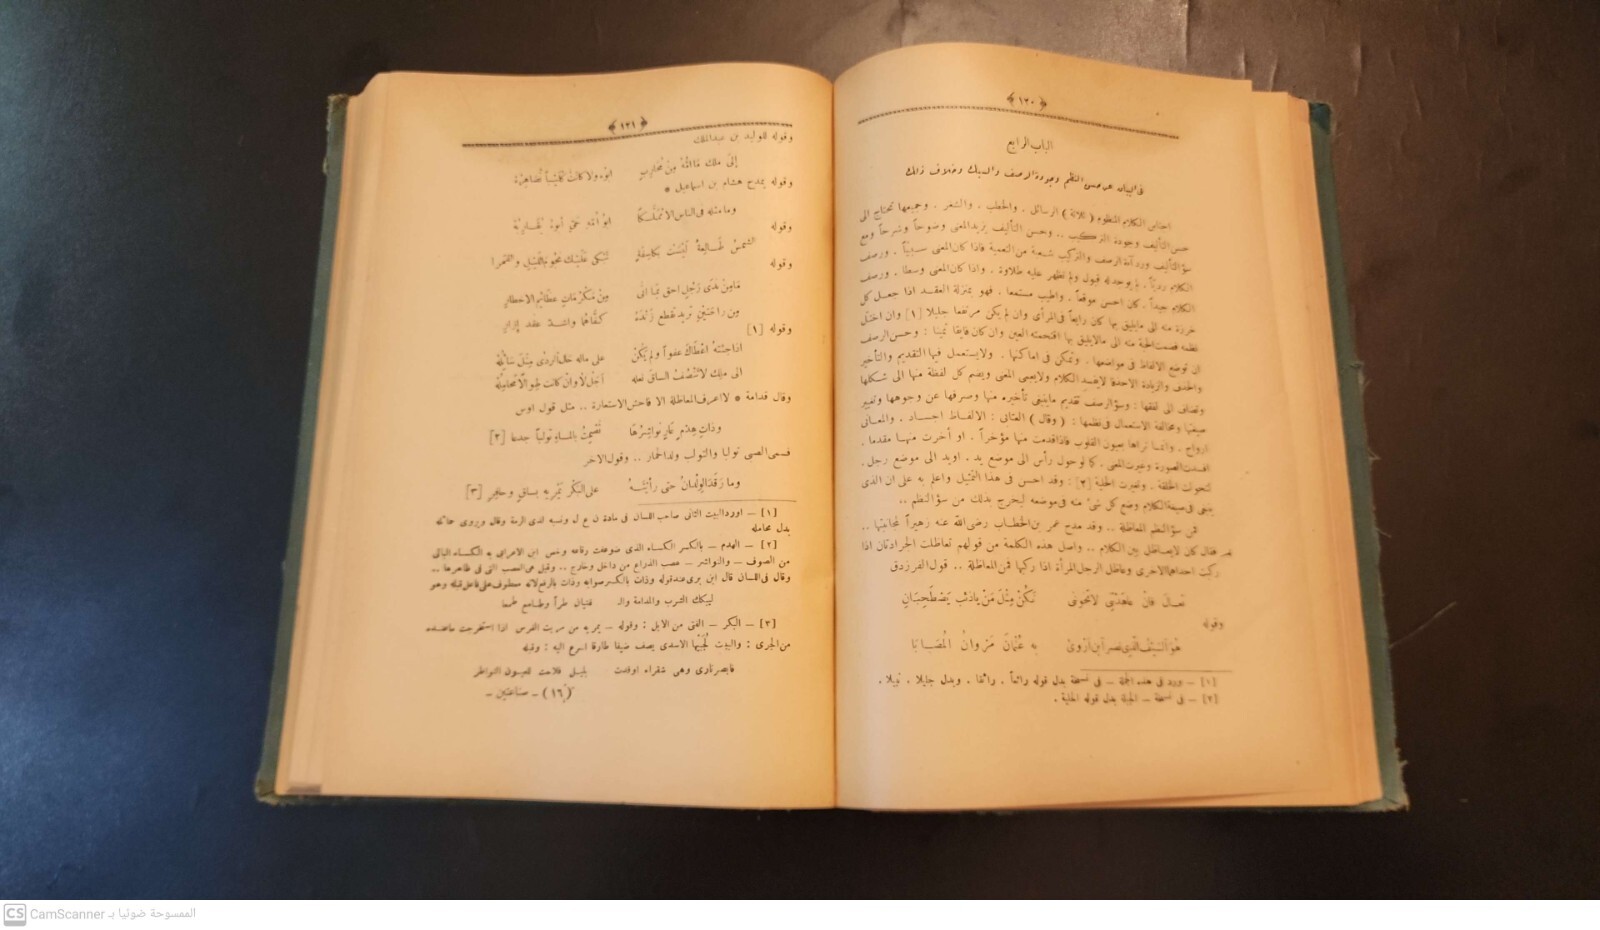 ﴿ ١٢٠ ﴾
الباب الرابع
فى البيان عن حسن النظم وجودة الرصف والسبك وخلاف ذلك
اجناس الكلام المنظوم ( ثلاثة ) الرسائل . والخطب . والشعر . وجميعها تحتاج الى
حسن التأليف وجودة التركيب .. وحسن التأليف يزيد المعنى وضوحاً وشرحاً ومع
سؤ التأليف ورداءة الرصف والتركيب شعبة من التعمية فاذا كان المعنى سبيّاً . ورصف
الكلام رديّاً . لم يوجد له قبول ولم تظهر عليه طلاوة . واذا كان المعنى وسطا . ورصف
الكلام جيداً . كان احسن موقعاً . واطيب مستمعا . فهو بمنزلة العقد اذا جعل كل
خرزة منه الى مايليق بها كان رائعاً فى المرأى وان لم يكن مرتفعا جليلا [١] وان اختل
نظمه فضمت الحبة منه الى مالايليق بها اقتحمته العين وان كان فايقا ثمينا : وحسن الرصف
ان توضع الالفاظ فى مواضعها . وتمكن فى اماكنها . ولايستعمل فيها التقديم والتأخير
والحذف والزيادة الاحذفا لايفسد الكلام ولايعمى المعنى ويضم كل لفظة منها الى شكلها
وتضاف الى لفقها : وسؤ الرصف تقديم ماينبغى تأخيره منها وصرفها عن وجوهها وتغيير
صيغتها ومخالفة الاستعمال فى نظمها : ( وقال ) العتابى : الالفاظ اجساد . والمعانى
ارواح . وانما تراها بعيون القلوب فاذا قدمت منها مؤخراً . او أخرت منها مقدما .
افسدت الصورة وغيرت المعنى . كما لو حول رأس الى موضع يد . اويد الى موضع رجل .
لتحولت الخلقة . وتغيرت الحلية [٢] : وقد احسن فى هذا التمثيل واعلم به على ان الذى
ينبغى فى صيغة الكلام وضع كل شئ منه فى موضعه ليخرج بذلك من سؤ النظم ..
فمن سؤ النظم المعاظلة .. وقد مدح عمر بن الخطاب رضى الله عنه زهيراً لمجانبتها ..
فقال كان لايعاظل بين الكلام .. واصل هذه الكلمة من قولهم تعاظلت الجرادتان اذا
ركبت احداهما الاخرى وعاظل الرجل المرأة اذا ركبها فمن المعاظلة .. قول الفرزدق
تعال فان عاهدتنى لاتخوننى نكن مثل من ياذئب يصطحبان
وقوله
هو السيف الذى نصر ابن أروى به عثمان مروان المصابا
[١] ـ ورد فى هذه الجملة ـ فى نسخة بدل قوله رائعاً . رائقا . وبدل جليلا . نبيلا .
[٢] ـ فى نسخة ـ الجبلة بدل قوله الحلية .
﴿ ١٢١ ﴾
وقوله للوليد بن عبدالملك
إلى ملك ما امه من محارب ابوه ولا كانت كليباً تصاهره
وقوله يمدح هشام بن اسماعيل *
وما مثله فى الناس الا مملكا ابو أمه حى أبوه يقاربه
وقوله
الشمس طالعة ليست بكاسفة تبكى عليك نجوم الليل والقمرا
وقوله
ما من ندى رجل احق بما اتى من مكرمات عظائم الاخطار
من راحتين يزيد يقطع زنده كفاهما واشد عقد إزار
وقوله [١]
اذا جئته اعطاك عفواً ولم يكن على ماله حال الردى مثل سائله
الى ملك لاتنصف الساق نعله أجل لا وان كانت طوالا محامله
وقال قدامة * لااعرف المعاظلة الا فاحش الاستعارة .. مثل قول اوس
وذات هدم عار نواشرها تصمت بالماء تولباً جدعا [٢]
فسمى الصبى تولبا والتولب ولد الحمار .. وقول الاخر
وما رقد الولدان حتى رأيته على البكر يمريه بساق وحافر [٣]
[١] ـ اورد البيت الثانى صاحب اللسان فى مادة ن ع ل ونسبه لذى الرمة وقال ويروى حمائله
بدل محامله
[٢] ـ الهدم ـ بالكسر الكساء الذى ضوعفت رقاعه وخص ابن الاعرابى به الكساء البالى
من الصوف ـ والنواشر ـ عصب الذراع من داخل وخارج .. وقيل هى العصب التى فى ظاهرها ..
وقال فى اللسان قال ابن برى عند قوله وذات بالكسر صوابه وذات بالرفع لانه معطوف على فاعل قبله وهو
ليبكك الشرب والمدامة والـ فتيان طراً وطامع طمعا
[٣] ـ البكر ـ الفتى من الابل : وقوله ـ يمريه من مريت الفرس اذا استخرجت ماعنده
من الجرى : والبيت لجبيها الاسدى يصف ضيفا طارقا اسرع اليه : وقبله
فابصر نارى وهى شقراء اوقدت بليل فلاحت للعيون النواظر
( ١٦ ) ـ صناعتين ـ
CS CamScanner الممسوحة ضوئيا بـ